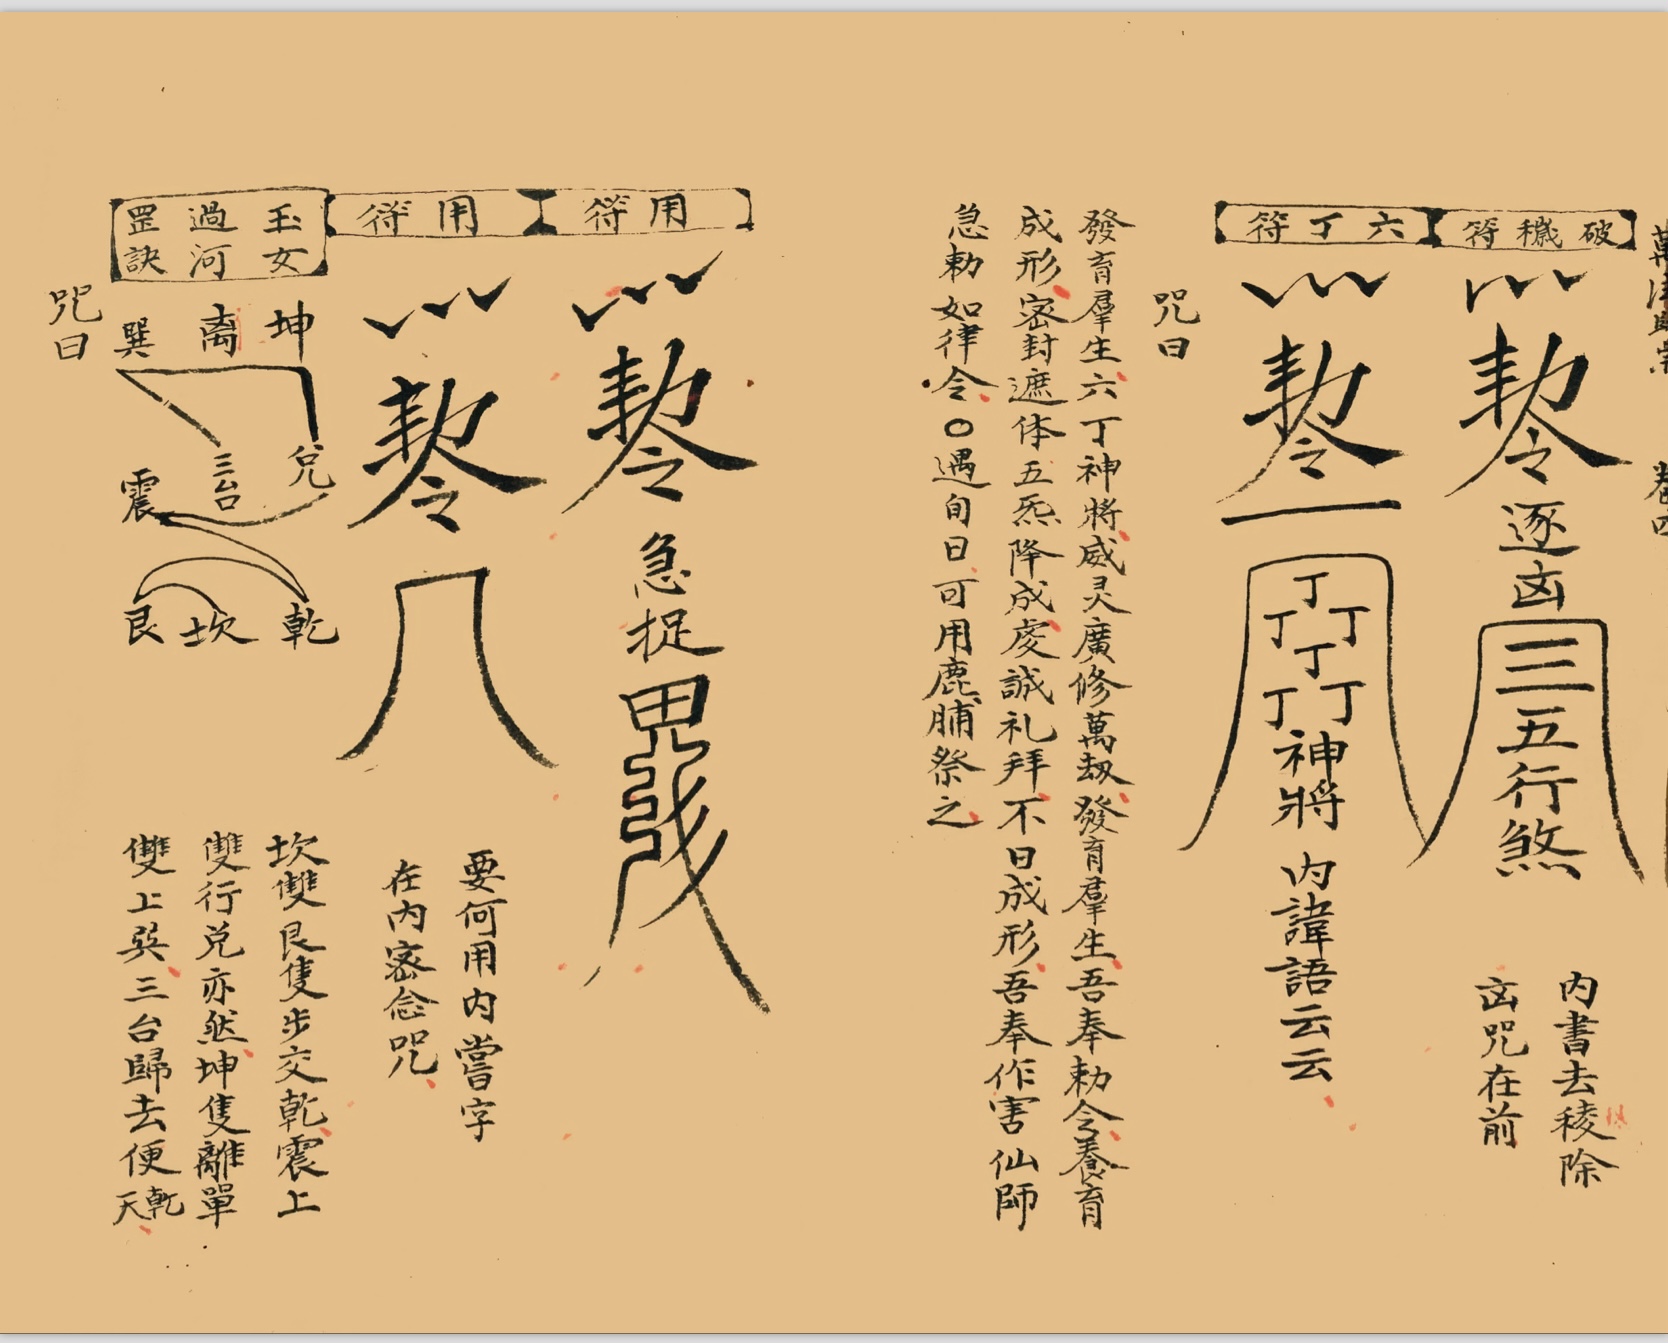 破穢符
勅令逐凶三五行煞
內書去稜除
凶咒在前
六丁符
勅令
丁丁丁丁丁丁神將
內諱語云云
咒曰
發育羣生六丁神將威灵廣修萬劫發育羣生吾奉勅令養育
成形密封遮体五炁降成虔誠礼拜不日成形吾奉作害仙師
急勅如律令○遇旬日可用鹿脯祭之
用符
勅令急捉
用符
勅令
要何用內嘗字
在內密念咒
玉女
過河
罡訣
坤
离
巽
兌
三台
震
乾
坎
艮
坎雙艮隻步交乾震上
雙行兌亦然坤隻離單
雙上巽三台歸去便乾天
咒曰